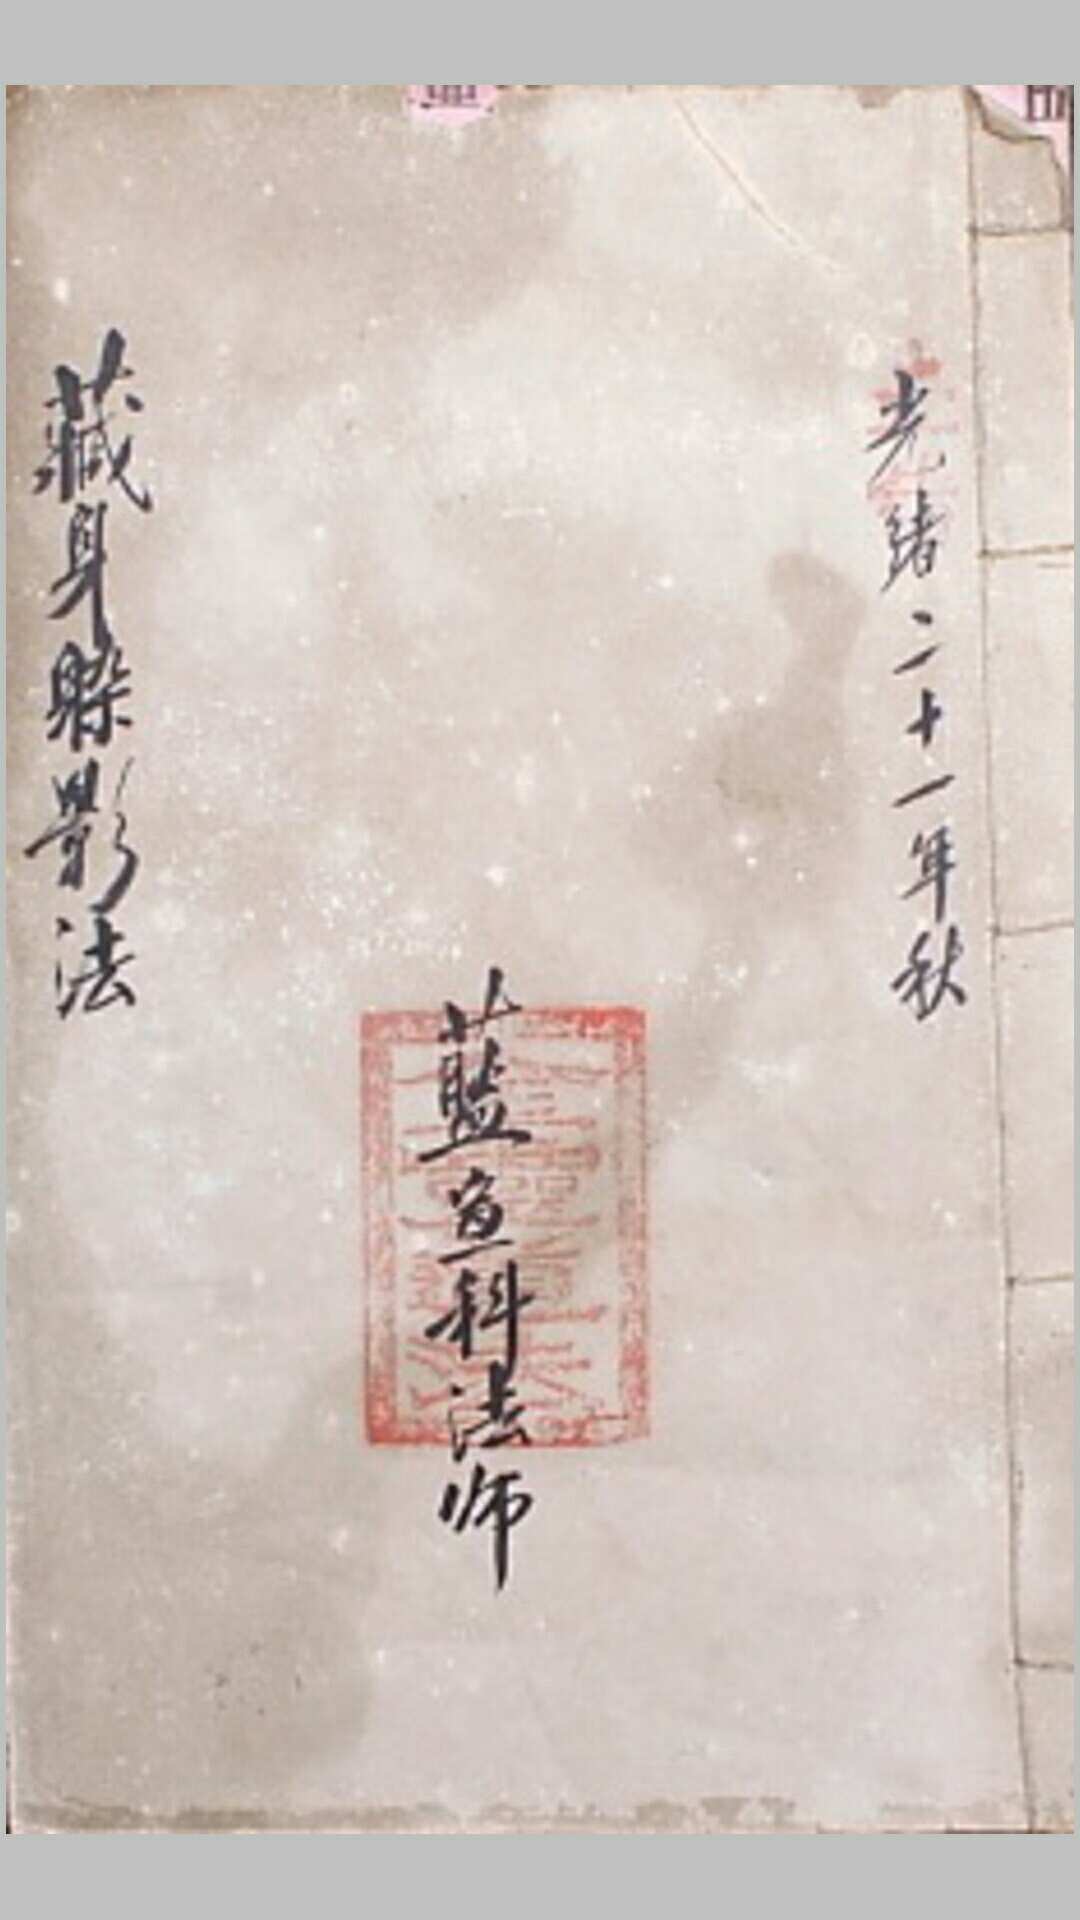 光绪二十一年秋
藍宣科法师
藏身躲影法